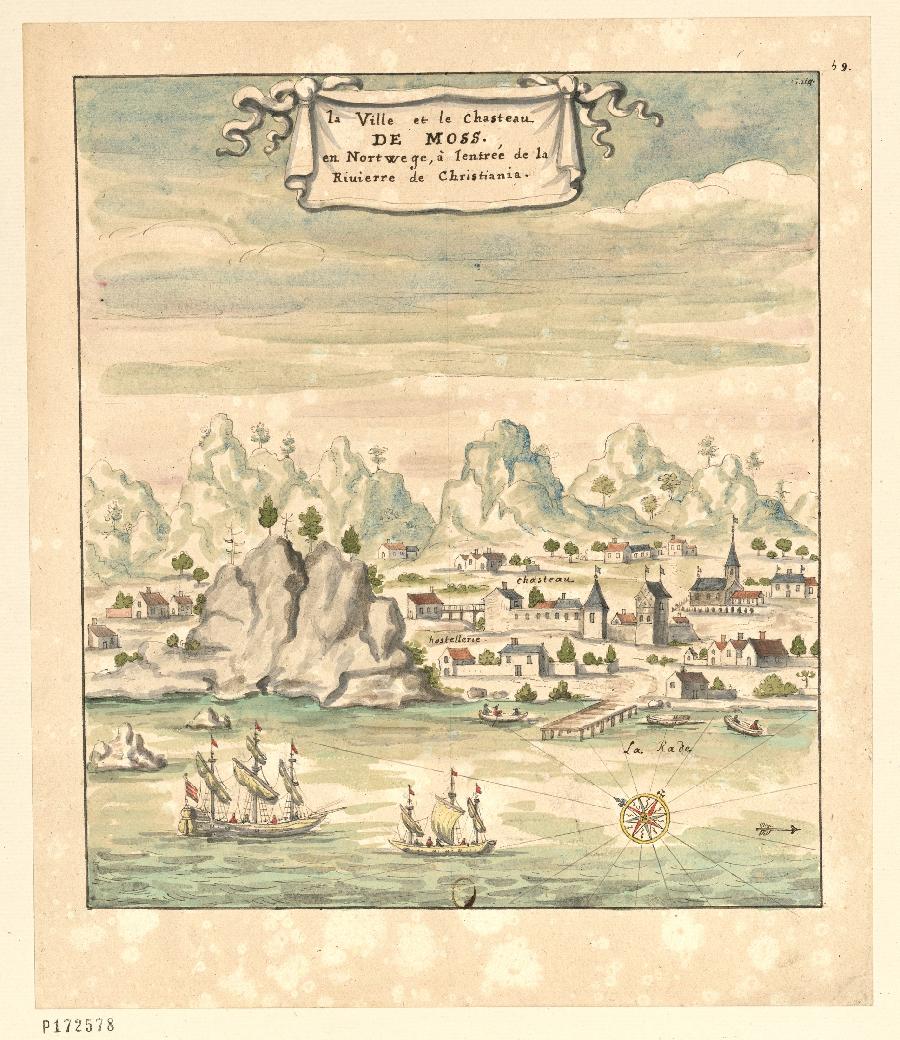 59.
la Ville et le chasteau
DE MOSS.
en Nortwege, à lentrée de la
Rivierre de Christiania.
chasteau
hostellerie
La Rade
P172578